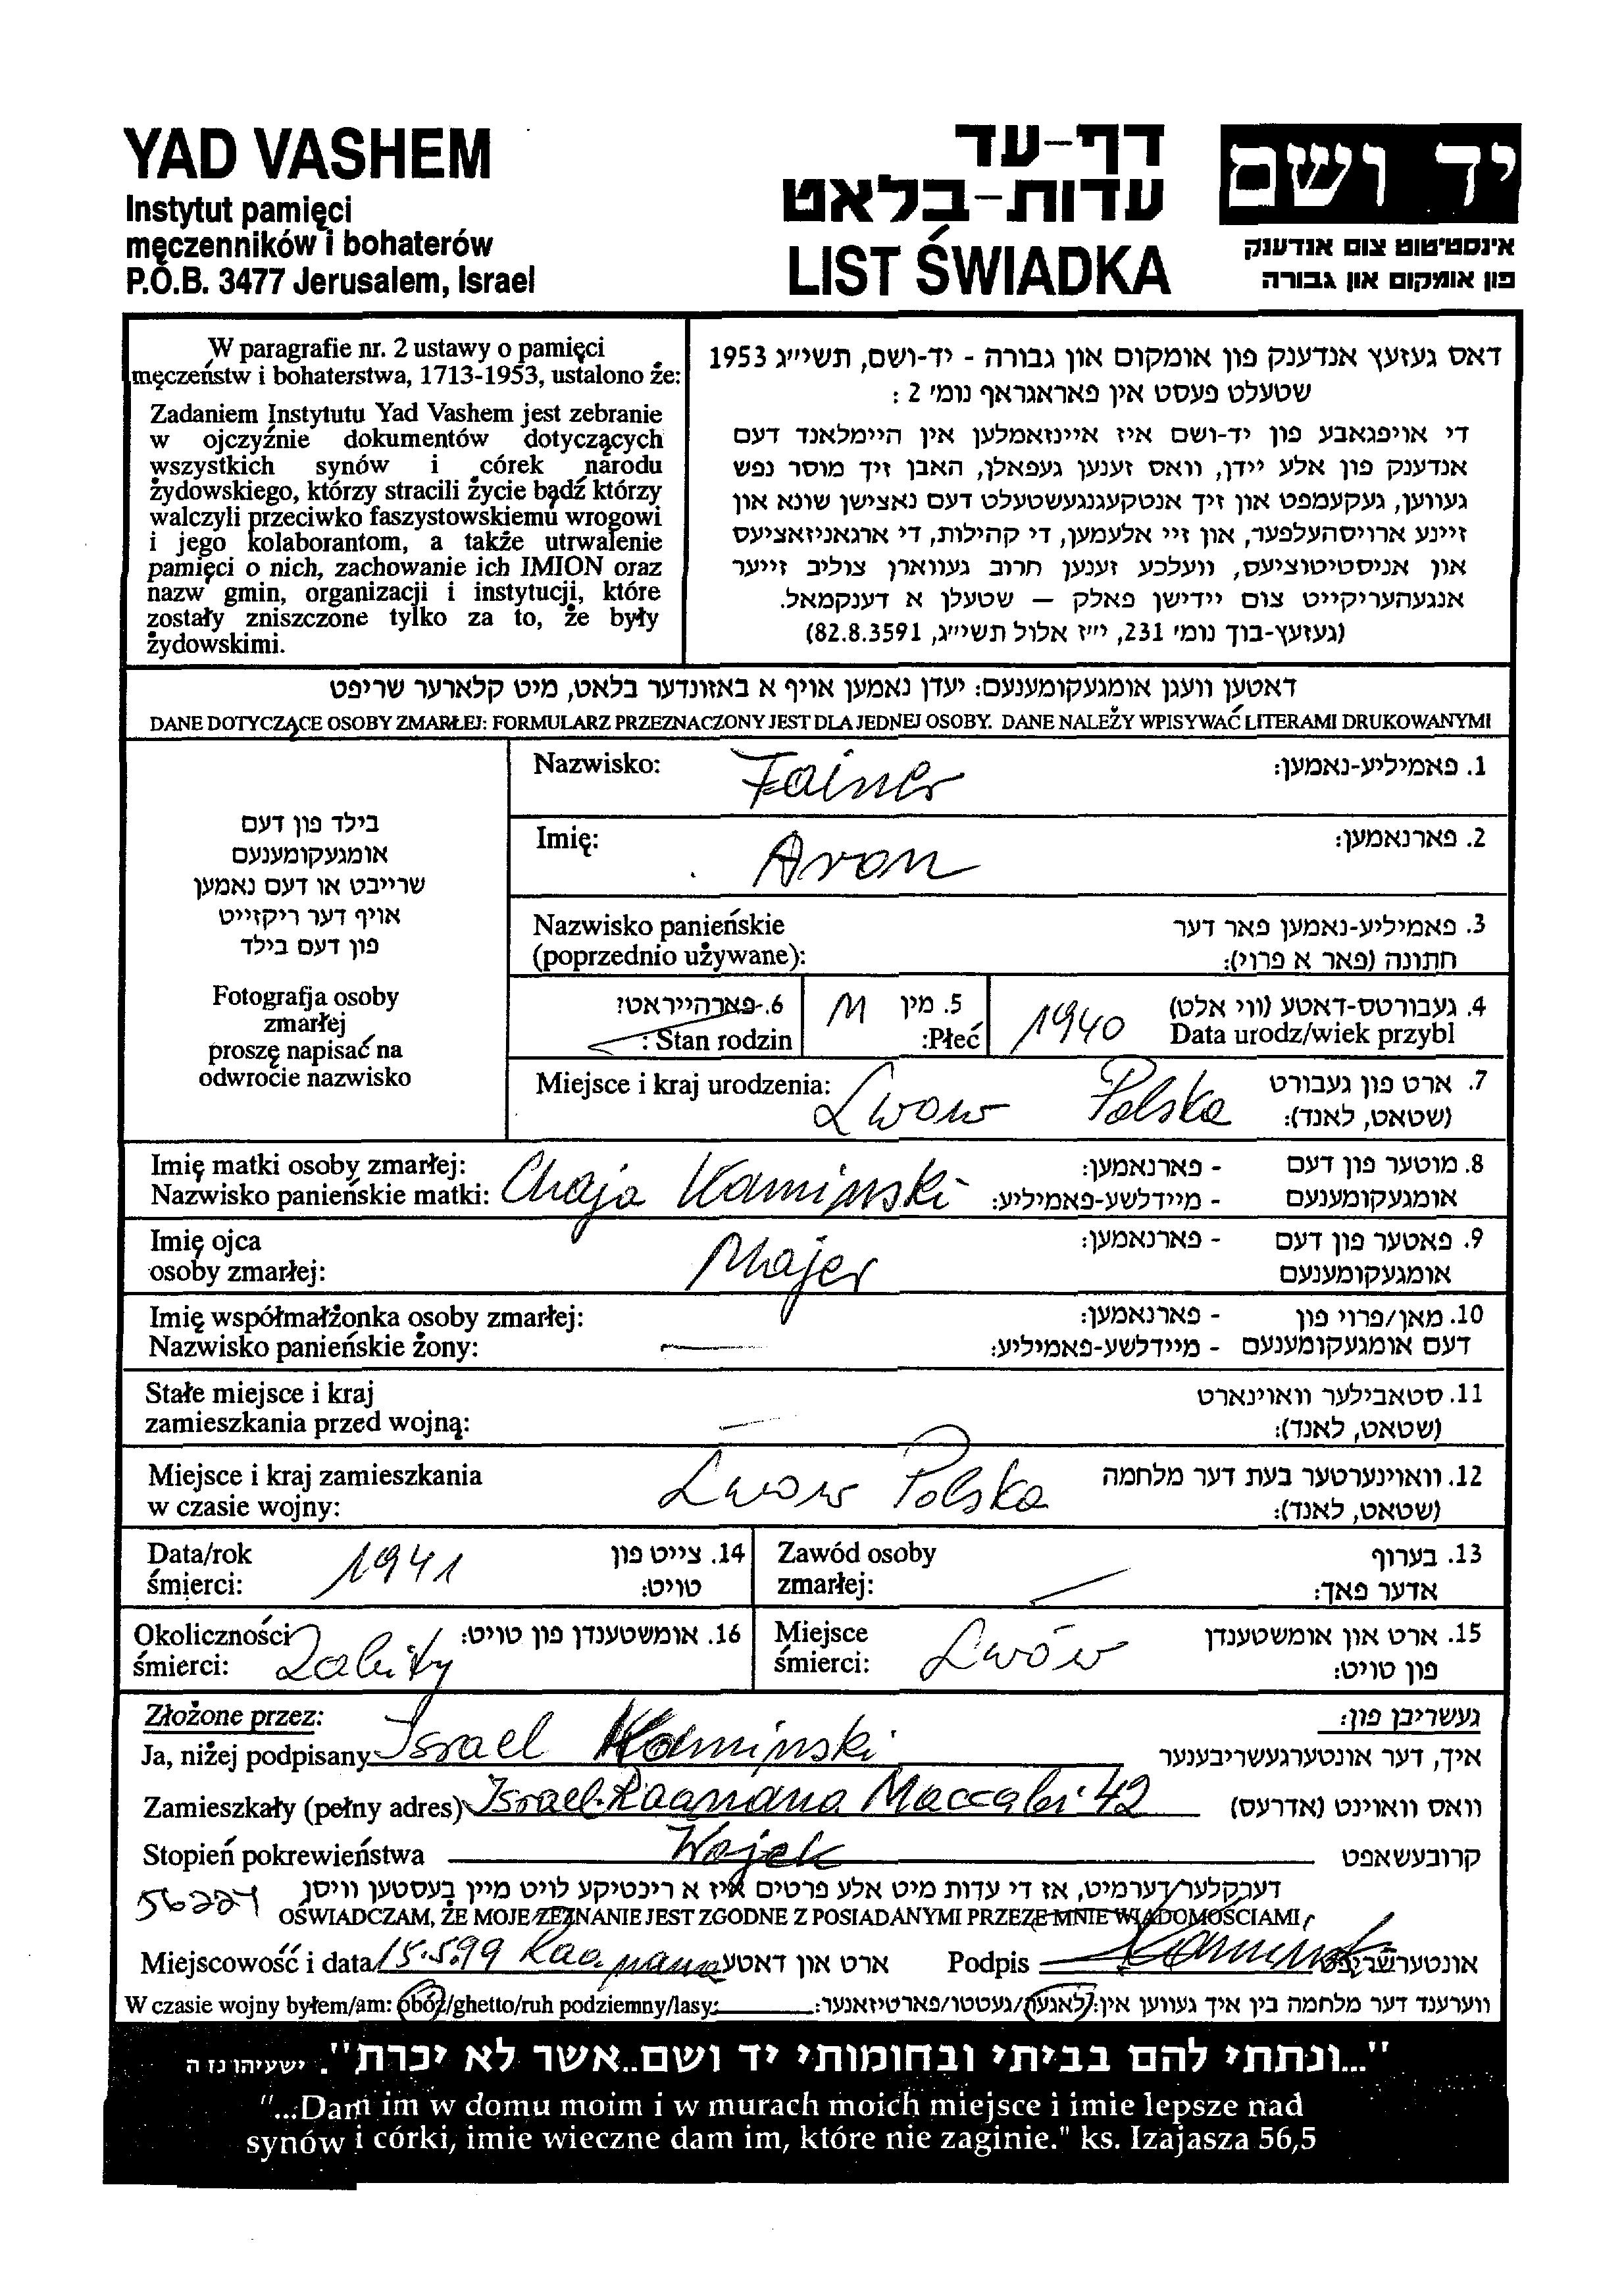 YAD VASHEM
Instytut pamięci
męczenników i bohaterów
P.O.B. 3477 Jerusalem, Israel
דף-עד
עדות-בלאט
LIST ŚWIADKA
יד ושם
אינסטיטוט צום אנדענק
פון אומקום און גבורה
W paragrafie nr. 2 ustawy o pamięci
męczeństw i bohaterstwa, 1713-1953, ustalono że:
Zadaniem Instytutu Yad Vashem jest zebranie
w ojczyźnie dokumentów dotyczących
wszystkich synów i córek narodu
żydowskiego, którzy stracili życie bądź którzy
walczyli przeciwko faszystowskiemu wrogowi
i jego kolaborantom, a także utrwalenie
pamięci o nich, zachowanie ich IMION oraz
nazw gmin, organizacji i instytucji, które
zostały zniszczone tylko za to, że były
żydowskimi.
דאס געזעץ אנדענק פון אומקום און גבורה - יד-ושם, תשי״ג 1953
שטעלט פעסט אין פאראגראף נומ׳ 2 :
די אויפגאבע פון יד-ושם איז איינזאמלען אין היימלאנד דעם
אנדענק פון אלע יידן, וואס זענען געפאלן, האבן זיך מוסר נפש
געווען, געקעמפט און זיך אנטקעגנגעשטעלט דעם נאצישן שונא און
זיינע ארויסהעלפער, און זיי אלעמען, די קהילות, די ארגאניזאציעס
און אניסטיטוציעס, וועלכע זענען חרוב געווארן צוליב זייער
אנגעהעריקייט צום יידישן פאלק — שטעלן א דענקמאל.
(געזעץ-בוך נומ׳ 231, י״ז אלול תשי״ג, 82.8.3591)
דאטען וועגן אומגעקומענעם: יעדן נאמען אויף א באזונדער בלאט, מיט קלארער שריפט
DANE DOTYCZĄCE OSOBY ZMARŁEJ: FORMULARZ PRZEZNACZONY JEST DLA JEDNEJ OSOBY. DANE NALEŻY WPISYWAĆ LITERAMI DRUKOWANYMI
בילד פון דעם
אומגעקומענעם
שרייבט או דעם נאמען
אויף דער ריקזייט
פון דעם בילד
Fotografja osoby
zmarłej
proszę napisać na
odwrocie nazwisko
Nazwisko: Fainer 1. פאמיליע-נאמען:
Imię: Aron 2. פארנאמען:
Nazwisko panieńskie 3. פאמיליע-נאמען פאר דער
(poprzednio używane): חתונה (פאר א פרוי):
6. פארהייראט? M 5. מין 1940 4. געבורטס-דאטע (ווי אלט)
Stan rodzin : Płeć: Data urodz/wiek przybl
Miejsce i kraj urodzenia: Lwow Polska 7. ארט פון געבורט
(שטאט, לאנד):
Imię matki osoby zmarłej: - פארנאמען: 8. מוטער פון דעם
Nazwisko panieńskie matki: Chaja Kaminski - מיידלשע-פאמיליע: אומגעקומענעם
Imię ojca Majer - פארנאמען: 9. פאטער פון דעם
osoby zmarłej: אומגעקומענעם
Imię współmałżonka osoby zmarłej: - פארנאמען: 10. מאן/פרוי פון
Nazwisko panieńskie żony: — - מיידלשע-פאמיליע: דעם אומגעקומענעם
Stałe miejsce i kraj 11. סטאבילער וואוינארט
zamieszkania przed wojną: — (שטאט, לאנד):
Miejsce i kraj zamieszkania Lwow Polska 12. וואוינערטער בעת דער מלחמה
w czasie wojny: (שטאט, לאנד):
Data/rok 1941 14. צייט פון Zawód osoby 13. בערוף
śmierci: טויט: zmarłej: אדער פאך:
Okoliczności Zabity 16. אומשטענדן פון טויט: Miejsce Lwów 15. ארט און אומשטענדן
śmierci: śmierci: פון טויט:
Złożone przez: געשריבן פון:
Ja, niżej podpisany Israel Kaminski איך, דער אונטערגעשריבענער
Zamieszkały (pełny adres) Israel. Raanana Maccabi 42 וואס וואוינט (אדרעס)
Stopień pokrewieństwa Wojek קרובעשאפט
56221 דערקלער דערמיט, אז די עדות מיט אלע פרטים איז א ריכטיקע לויט מיין בעסטען וויסן
OŚWIADCZAM, ŻE MOJE ZEZNANIE JEST ZGODNE Z POSIADANYMI PRZEZE MNIE WIADOMOŚCIAMI
Miejscowość i data 15.5.99 Raanana ארט און דאטע Podpis Kaminski אונטערשריפט
W czasie wojny byłem/am: obóz/ghetto/ruh podziemny/lasy: ווערענד דער מלחמה בין איך געווען אין: לאגער/געטטו/פארטיזאנער:
"...ונתתי להם בביתי ובחומותי יד ושם..אשר לא יכרת". ישעיהו נז ה
"...Dam im w domu moim i w murach moich miejsce i imie lepsze nad
synów i córki, imie wieczne dam im, które nie zaginie." ks. Izajasza 56,5